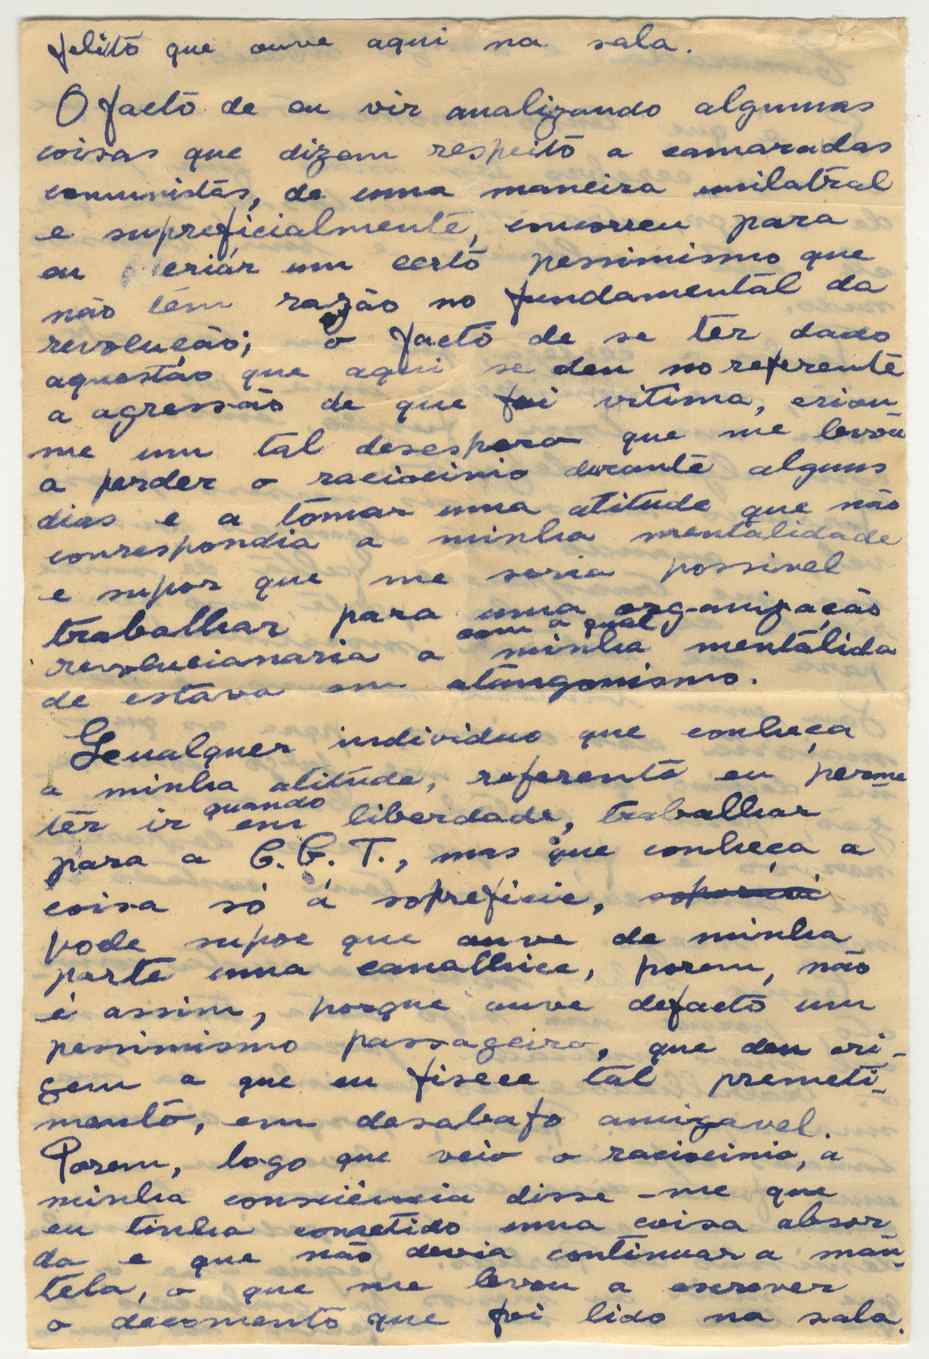 felito que ouve aqui na sala.
O facto de eu vir analizando algumas
coisas que dizem respeito a camaradas
comunistas, de uma maneira unilatral
e supreficialmente, concorreu para
eu criár um certo pessimismo que
não têm razão no fundamental da
revolução; o facto de se ter dado
aquestão que aqui se deu no referente
a agressão de que foi vitima, criou
me um tal desespero que me levou
a perder o raciocinio durante alguns
dias e a tomar uma atitude que não
correspondia a minha mentalidade
e supor que me seria possivel
trabalhar para uma organização
revolucianaria com a qual a minha mentalida
de estava em atangonismo.
Qualquer individuo que conheça
a minha atitude, referente eu perme
têr ir quando em liberdade, trabalhar
para a C.G.T., mas que conheça a
coisa só á sopreficie,
pode supor que ouve de minha
parte uma canalhice, porem, não
é assim, porque ouve defacto um
pessimismo passageiro, que deu ori-
gem a que eu fisece tal premeti-
mento, em desabafo amigavel.
Porem, logo que veio o raciocinio, a
minha consciência disse-me que
eu tinha cometido uma coisa absor
da e que não devia continuar a man-
tela, o que me levou a escrever
o decomento que foi lido na sala.